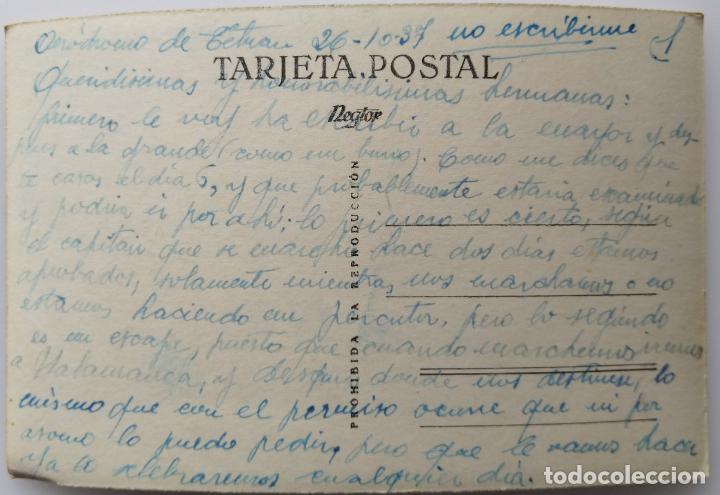 Aeródromo de Tetuan 26-10-37 no escribirme
1
TARJETA POSTAL
Queridisimas y honorabilisimas hermanas:
Negtor
primero le voy ha escribir a la mayor y des-
pues a la grande (como un burro). Como me dices que
te casas el dia 5, y que probablemente estaria examinado
y podria ir por ahí; lo primero es cierto, según
el capitán que se marchó hace dos dias estamos
aprobados, solamente mientras nos marchamos o no
estamos haciendo un, pero lo segundo
es un escape, puesto que cuando marchemos iremos
a Salamanca, y despues donde nos destinen, lo
mismo que con el permiso ocurre que ni por
asomo lo puedo pedir, pero que le vamos hacer
ya te celebraremos cualquier dia.
PROHIBIDA LA REPRODUCCIÓN
todocoleccion